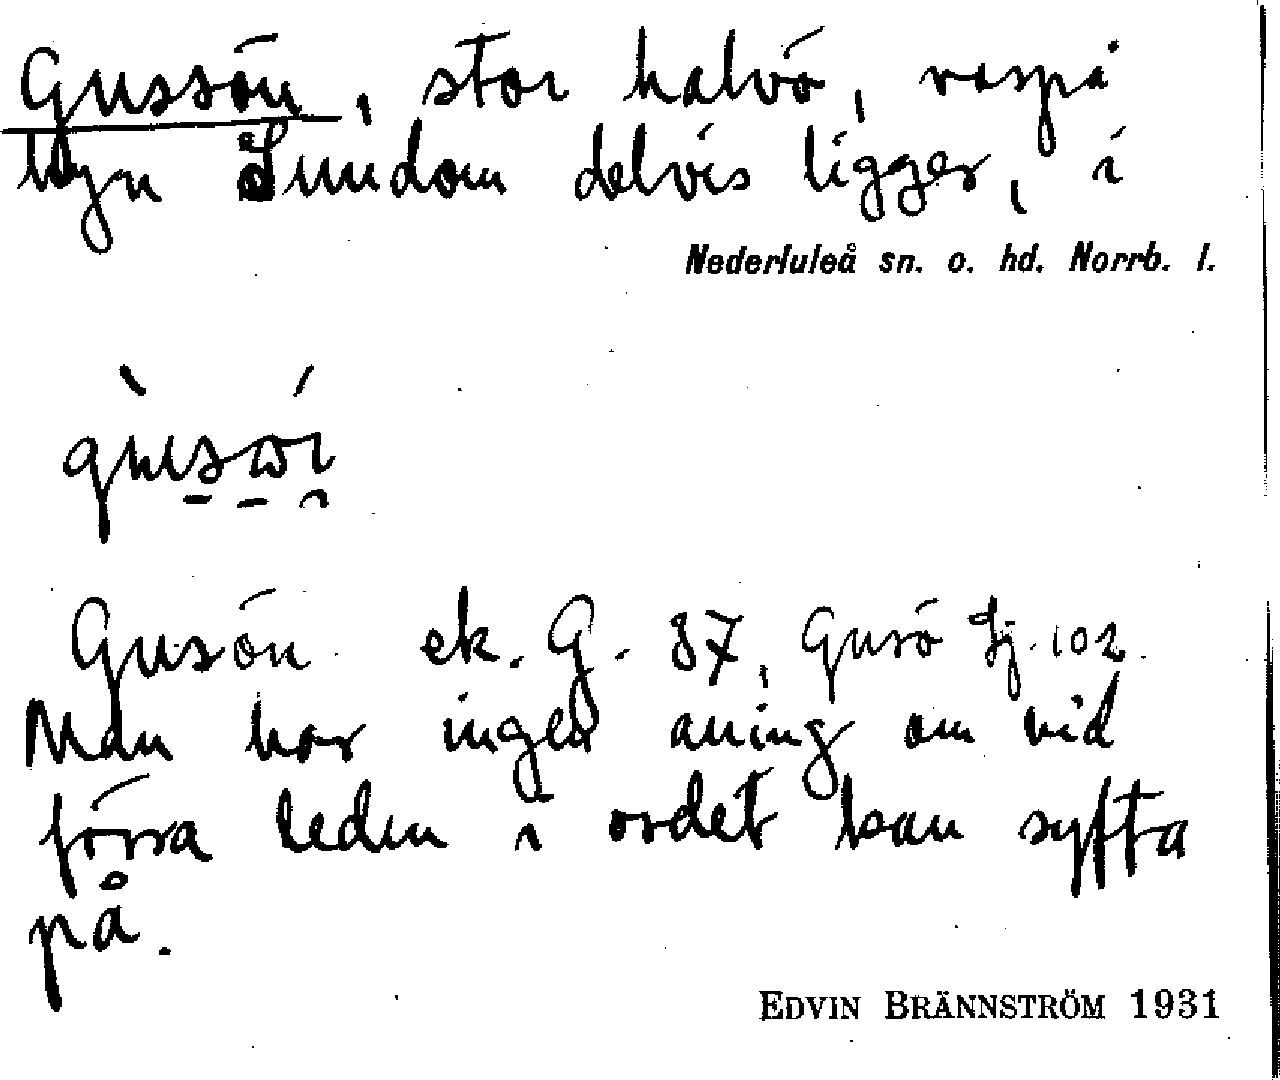 Gussön, stor halvö, varpå
byn Sundom delvis ligger, i
Nederluleå sn. o. hd. Norrb. l.
Gusön ek. G. 87, Gusö Gj. 102.
Man har ingen aning om vad
förra leden i ordet kan syfta
på.
EDVIN BRÄNNSTRÖM 1931